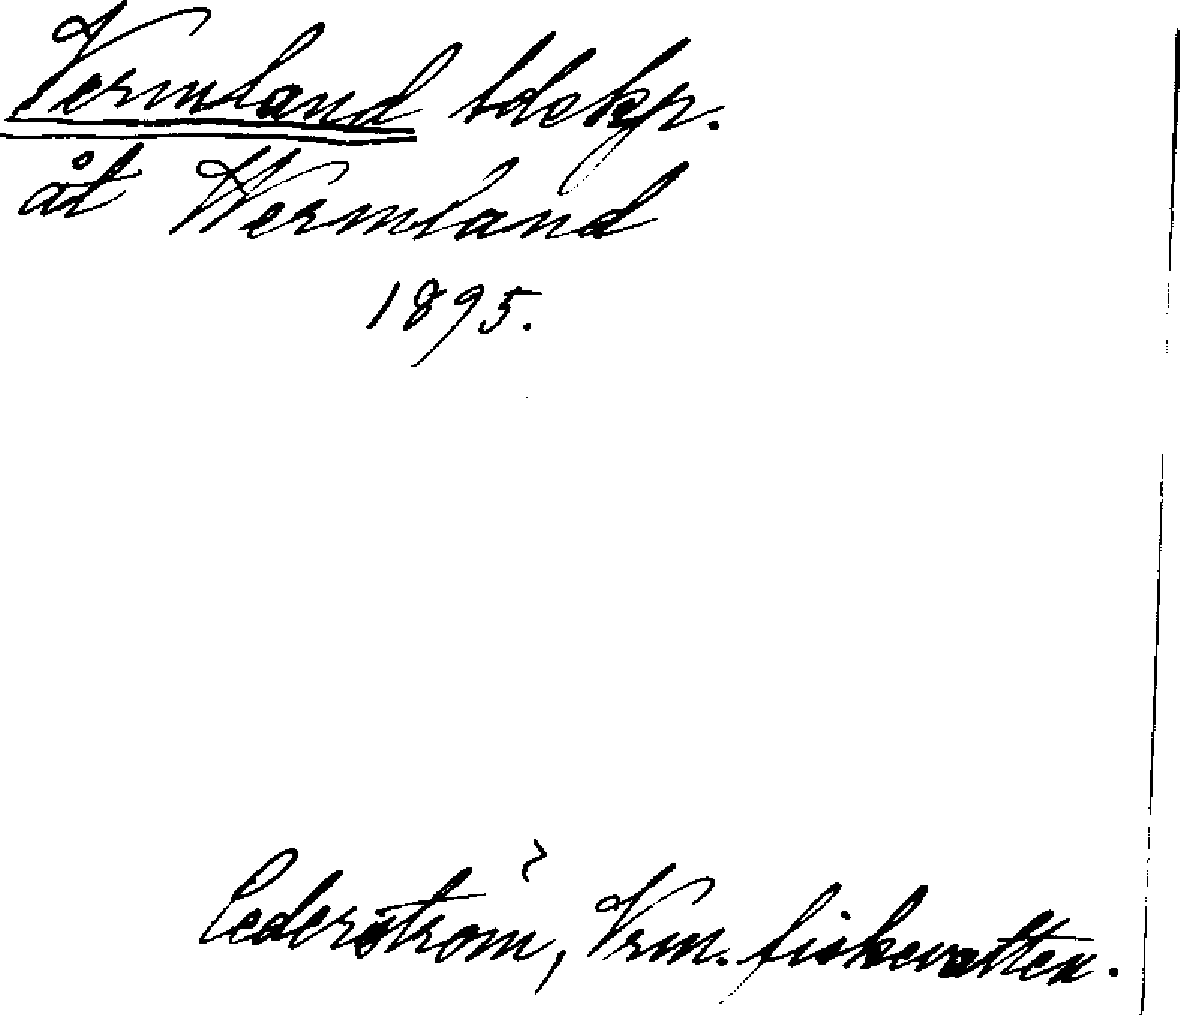 Vermland tdskr.
åt Wermland
1895.
Cederström, Vrm. fiskevatten.